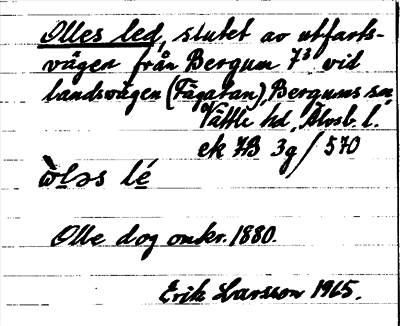 Olles led, slutet av utfarts-
vägen från Bergum 7³ vid
landsvägen (Fägatan), Bergums sn,
Vättle hd, Älvsb. l.
ek 7B 3g / 570
òl̲əs lé̲
Olle dog omkr. 1880.
Erik Larsson 1965.